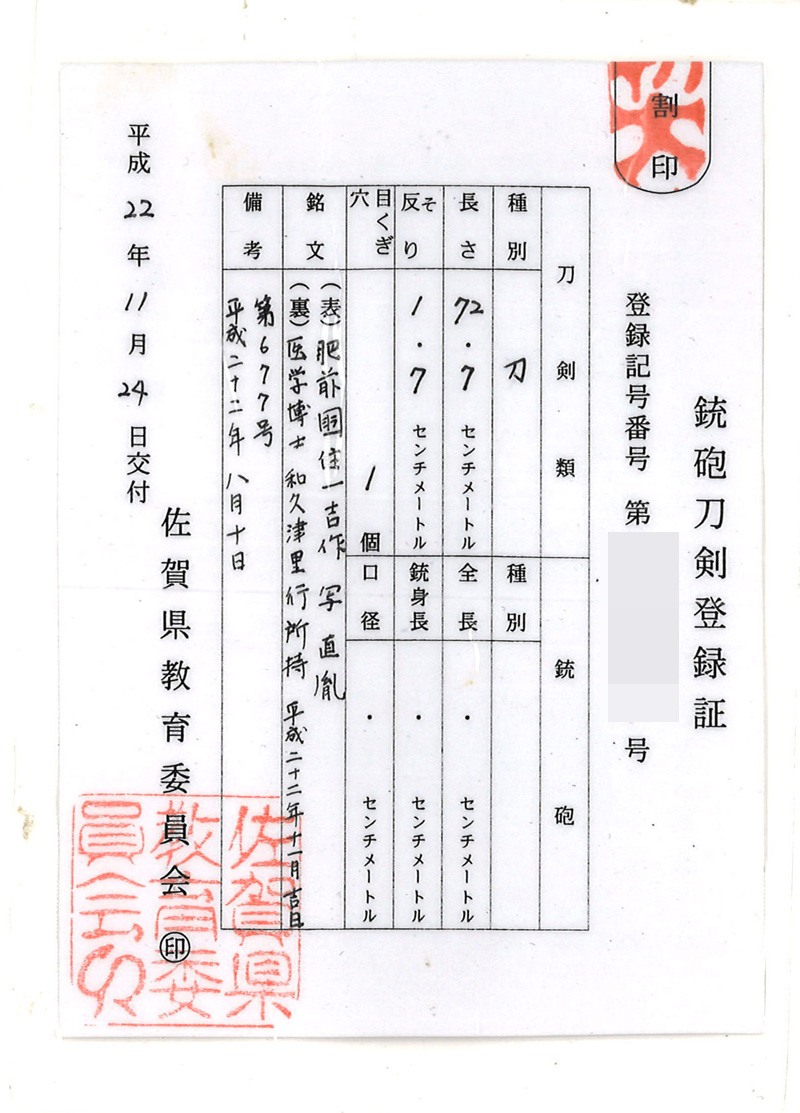 割印
銃砲刀剣登録証
登録記号番号 第 号
刀剣類
銃砲
種別 刀
種別
長さ 72・7 センチメートル
全長 ・ センチメートル
反り そ 1・7 センチメートル
銃身長 ・ センチメートル
目くぎ穴 1個
口径 ・ センチメートル
銘文
(表)肥前国住一吉作 写直胤
(裏)医学博士 和久津里行所持 平成二十二年十一月吉日
備考
第677号
平成二十二年八月十日
佐賀県教育委員会 印
平成22年11月24日交付
佐賀県
教育委
員会印